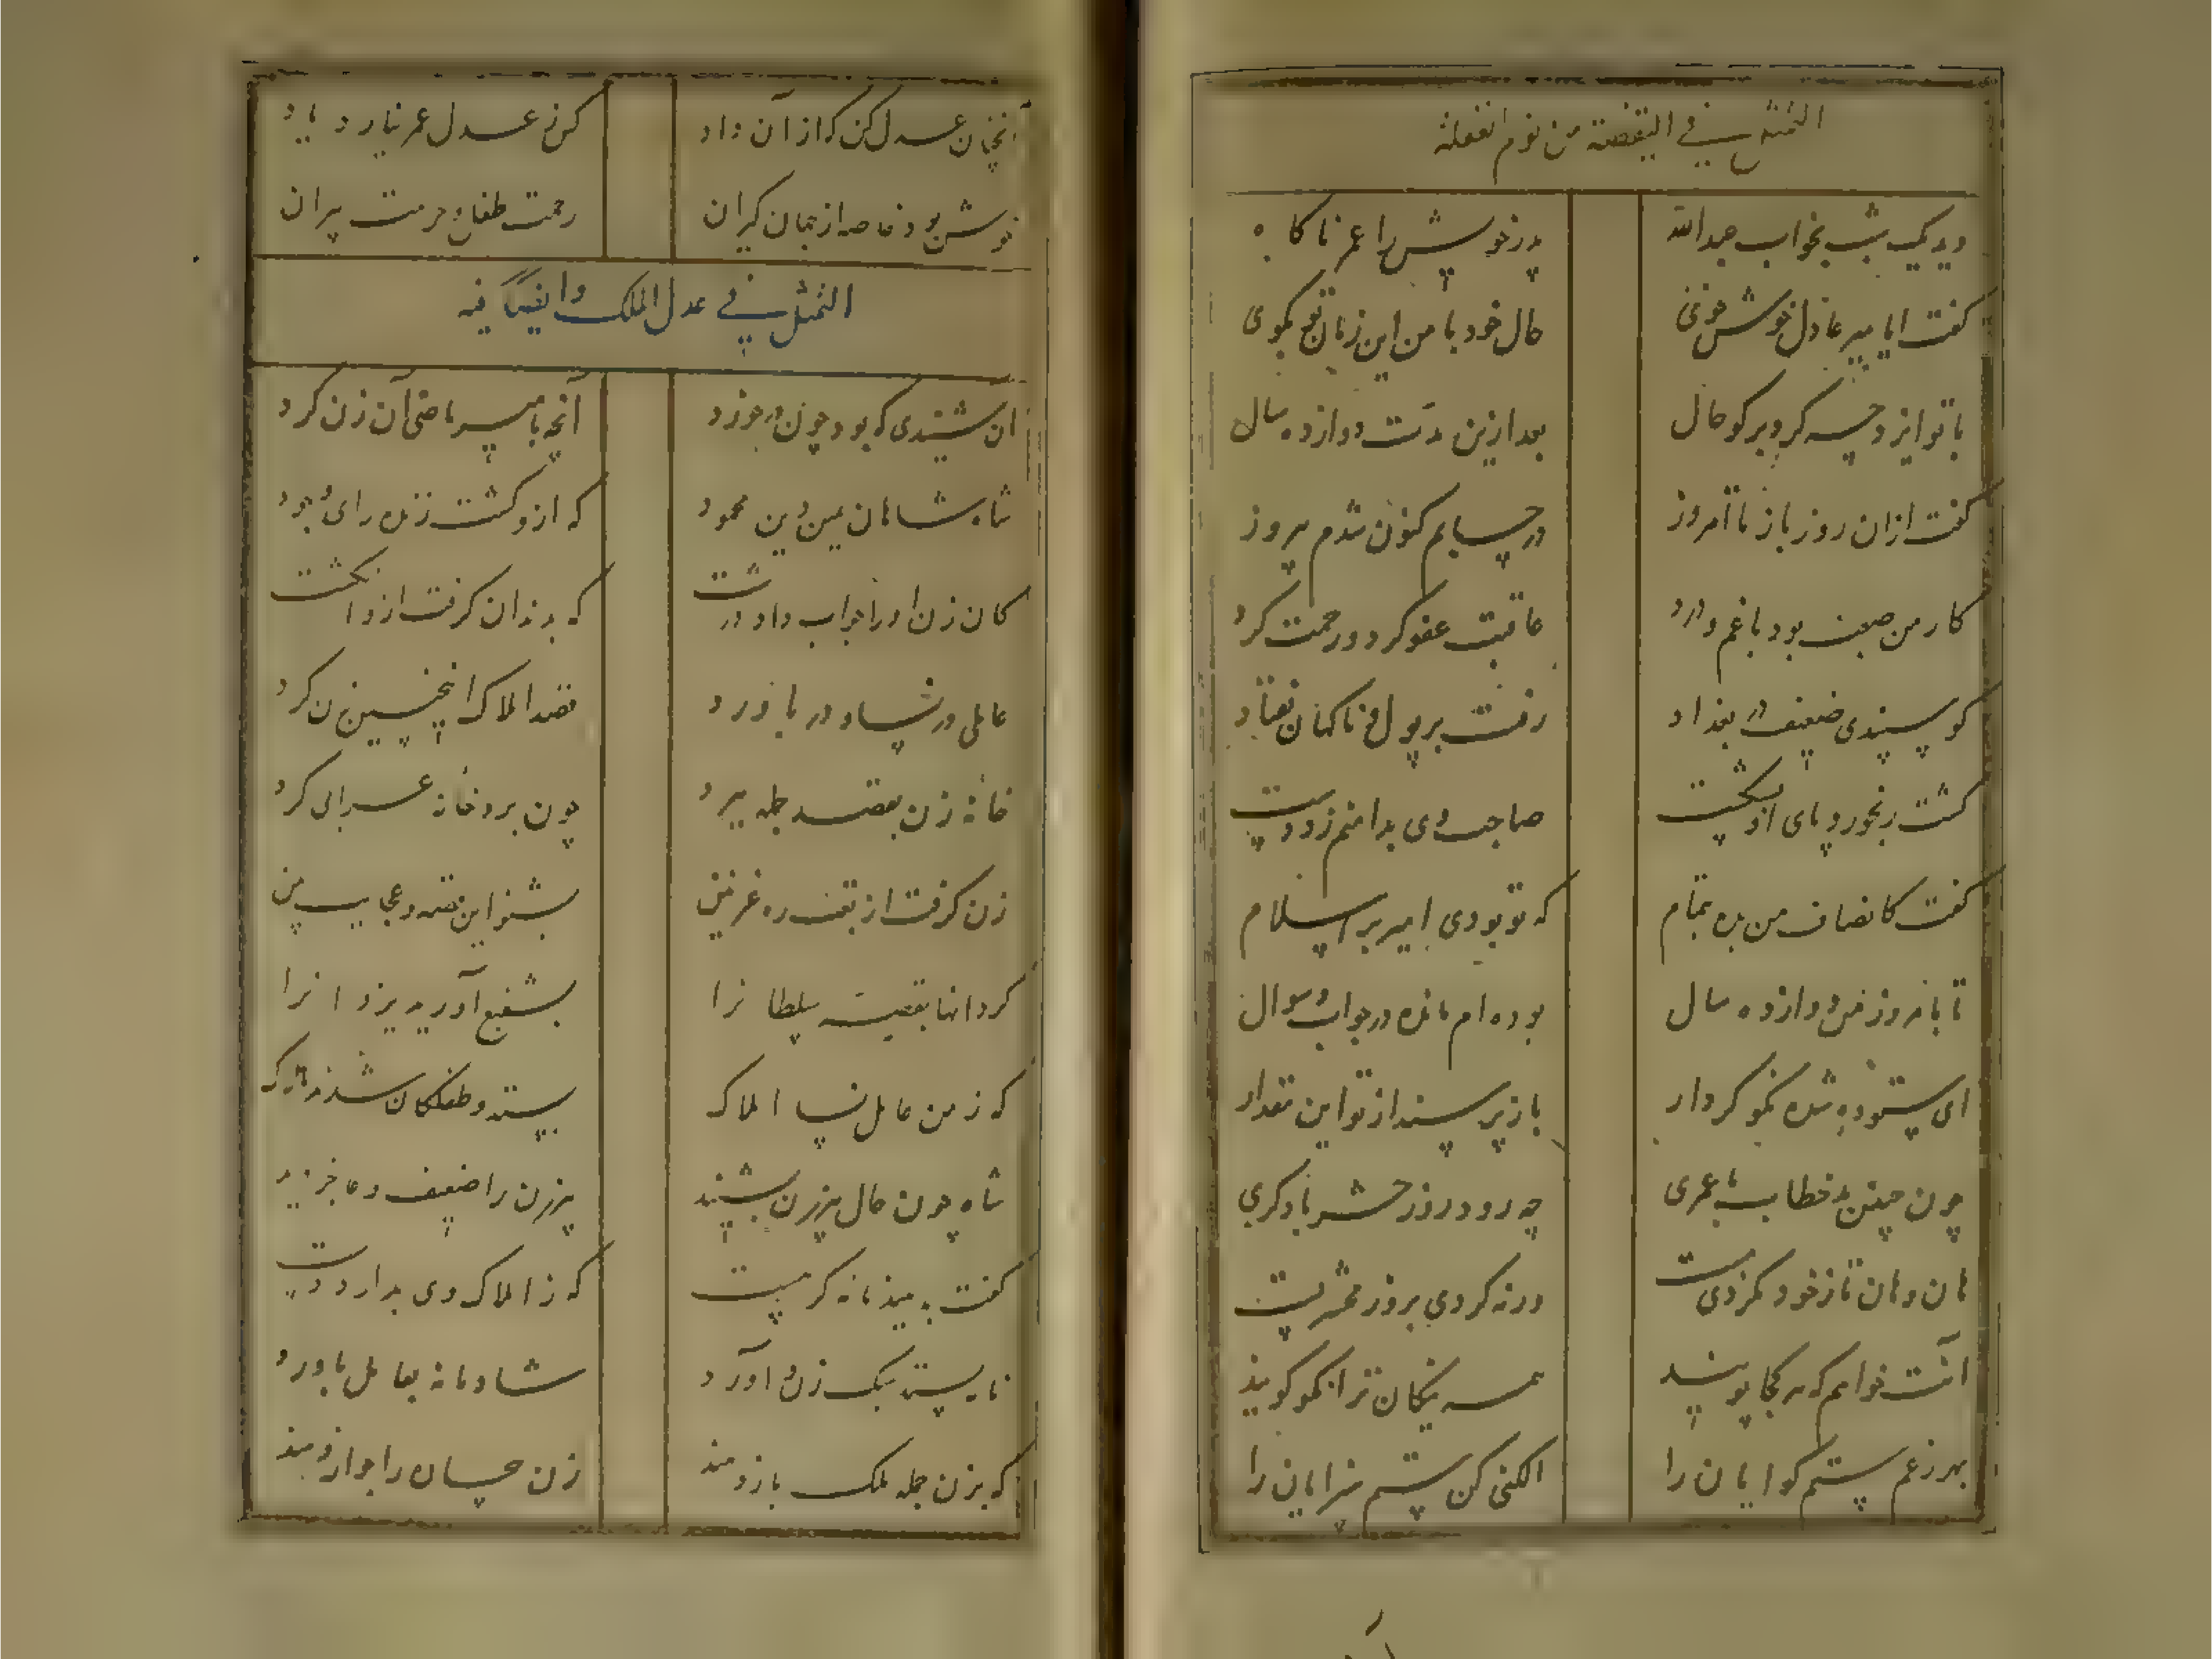 التمثیل فی الیقضة من نوم الغفلة
دید یک شب بخواب عبدالله
پدر خویش را عمر ناگاه
گفت ایا میر عادل خوش خوی
حال خود با من این زمان تو بگوی
با تو ایزد چه کرد بر گو حال
بعد ازین مدت دوازده سال
گفت ازان روز باز تا امروز
در حسابم کنون شدم پیروز
کار من صعب بود با غم و درد
عاقبت عفو کرد و رحمت کرد
گوسپندی ضعیف در بغداد
رفت بر پول و ناگهان بفتاد
گشت رنجور و پای او بشکست
صاحب وی بدامنم زد دست
گفت کانصاف من بده بتمام
که تو بودی امیر بر اسلام
تا بامروز من دوازده سال
بوده ام مانده در جواب و سوال
ای ستوده شده نکو کردار
باز پرسند از تو این مقدار
چون چنین بد خطاب با عمری
چه رود روز حشر با دگری
هان و هان تا ز خود نگردی مست
ورنه گردی بروز محشر پست
آنت خواهم که هر کجا پویند
همه نیکان ترا نکو گویند
بهر زغم ستم گوایان را
الکنی کن ستم سرایان را
آنچنان عدل کن که از آن داد
کس ز عدل عمر نیارد یاد
خوش بود خاصه از جهان گیران
رحمت طفل و حرمت پیران
التمثل فی عدل الملک و انصافه
آن شنیدی که بود چون در خورد
آنچه با میر ماضی آن زن کرد
شاه شاهان یمین دین محمود
که ازو گشت زنده رای و جود
کان زن او را جواب داد درشت
که بدندان گرفت ازو انگشت
عاملی در نسا و در باورد
قصد املاک اینچنین زن کرد
خانهٔ زن بقصد جمله ببرد
چون برو خانه عسرالی کرد
زن گرفت از تعب ره غزنین
بشنو این قصه و عجایب بین
کرد انها بقصه سلطانرا
بشفیع آورید یزدانرا
که ز من عامل نسا املاک
بستد و طفلکان شدند هلاک
شاه چون حال پیرزن بشنید
پیرزن را ضعیف و عاجز دید
گفت بدهید نامه گر هست
که ز املاک وی بدارد دست
نامه بستد سبک زن و آورد
شادمانه بعامل باورد
که بزن جمله ملک باز دهند
زن حسان را جواز دهند